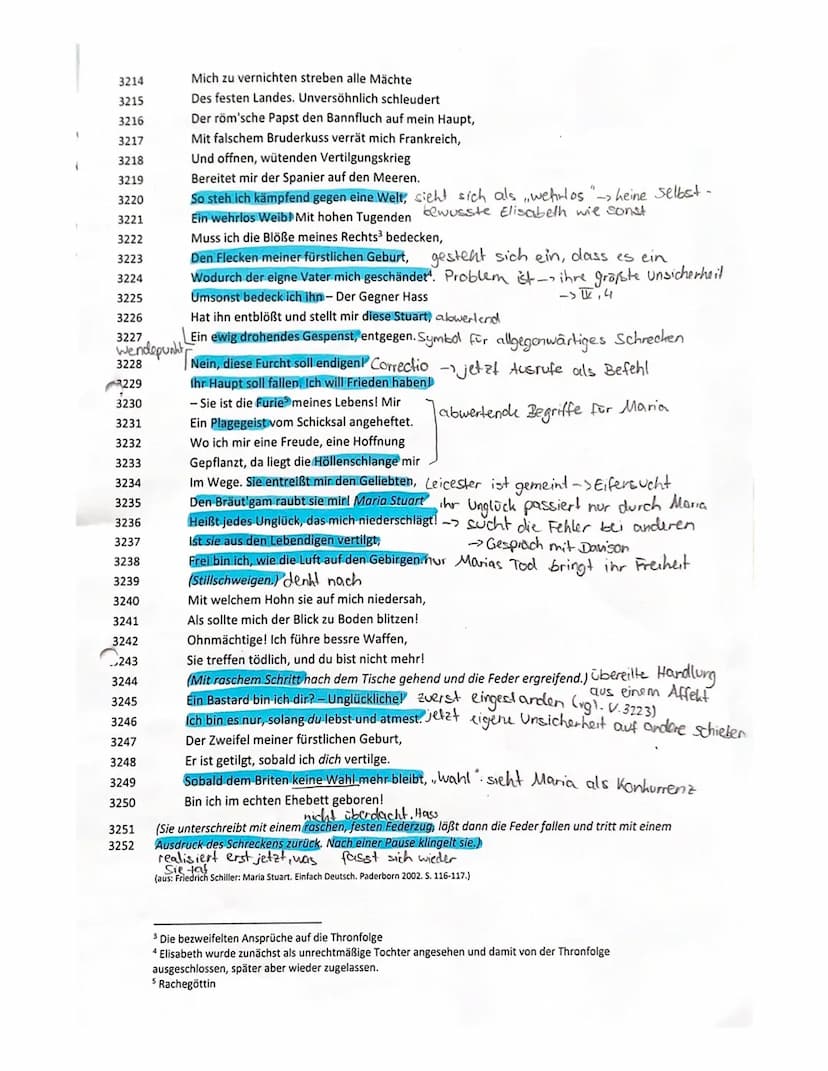 3214 Mich zu vernichten streben alle Mächte
3215 Des festen Landes. Unversöhnlich schleudert
3216 Der röm'sche Papst den Bannfluch auf mein Haupt,
3217 Mit falschem Bruderkuss verrät mich Frankreich,
3218 Und offnen, wütenden Vertilgungskrieg
3219 Bereitet mir der Spanier auf den Meeren.
3220 So steh ich kämpfend gegen eine Welt, sieht sich als „wehrlos" -> keine Selbst-
3221 Ein wehrlos Weib! Mit hohen Tugenden bewusste Elisabeth wie sonst
3222 Muss ich die Blöße meines Rechts³ bedecken,
3223 Den Flecken meiner fürstlichen Geburt, gesteht sich ein, dass es ein
3224 Wodurch der eigne Vater mich geschändet⁴. Problem ist -> ihre größte Unsicherheit
3225 Umsonst bedeck ich ihn – Der Gegner Hass -> IV, 4
3226 Hat ihn entblößt und stellt mir diese Stuart, abwertend
3227 Ein ewig drohendes Gespenst, entgegen. Symbol für allgegenwärtiges Schrecken
Wendepunkt
3228 Nein, diese Furcht soll endigen! Correctio -> jetzt Ausrufe als Befehl
3229 Ihr Haupt soll fallen. Ich will Frieden haben!
3230 – Sie ist die Furie⁵ meines Lebens! Mir abwertende Begriffe für Maria
3231 Ein Plagegeist vom Schicksal angeheftet.
3232 Wo ich mir eine Freude, eine Hoffnung
3233 Gepflanzt, da liegt die Höllenschlange mir
3234 Im Wege. Sie entreißt mir den Geliebten, Leicester ist gemeint -> Eifersucht
3235 Den Bräut'gam raubt sie mir! Maria Stuart ihr Unglück passiert nur durch Maria
3236 Heißt jedes Unglück, das mich niederschlägt! -> sucht die Fehler bei anderen
3237 Ist sie aus den Lebendigen vertilgt, -> Gespräch mit Davison
3238 Frei bin ich, wie die Luft auf den Gebirgen. nur Marias Tod bringt ihr Freiheit
3239 (Stillschweigen.) denkt nach
3240 Mit welchem Hohn sie auf mich niedersah,
3241 Als sollte mich der Blick zu Boden blitzen!
3242 Ohnmächtige! Ich führe bessre Waffen,
3243 Sie treffen tödlich, und du bist nicht mehr!
3244 (Mit raschem Schritt nach dem Tische gehend und die Feder ergreifend.) übereilte Handlung
aus einem Affekt
3245 Ein Bastard bin ich dir? – Unglückliche! zuerst eingestanden (vgl. V. 3223)
3246 Ich bin es nur, solang du lebst und atmest. jetzt eigene Unsicherheit auf andere schieben
3247 Der Zweifel meiner fürstlichen Geburt,
3248 Er ist getilgt, sobald ich dich vertilge.
3249 Sobald dem Briten keine Wahl mehr bleibt, „Wahl": sieht Maria als Konkurrenz
3250 Bin ich im echten Ehebett geboren!
nicht überdacht, Hass
3251 (Sie unterschreibt mit einem raschen, festen Federzug, läßt dann die Feder fallen und tritt mit einem
3252 Ausdruck des Schreckens zurück. Nach einer Pause klingelt sie.)
realisiert erst jetzt, was fasst sich wieder
sie tat
(aus: Friedrich Schiller: Maria Stuart. Einfach Deutsch. Paderborn 2002. S. 116-117.)
³ Die bezweifelten Ansprüche auf die Thronfolge
⁴ Elisabeth wurde zunächst als unrechtmäßige Tochter angesehen und damit von der Thronfolge
ausgeschlossen, später aber wieder zugelassen.
⁵ Rachegöttin